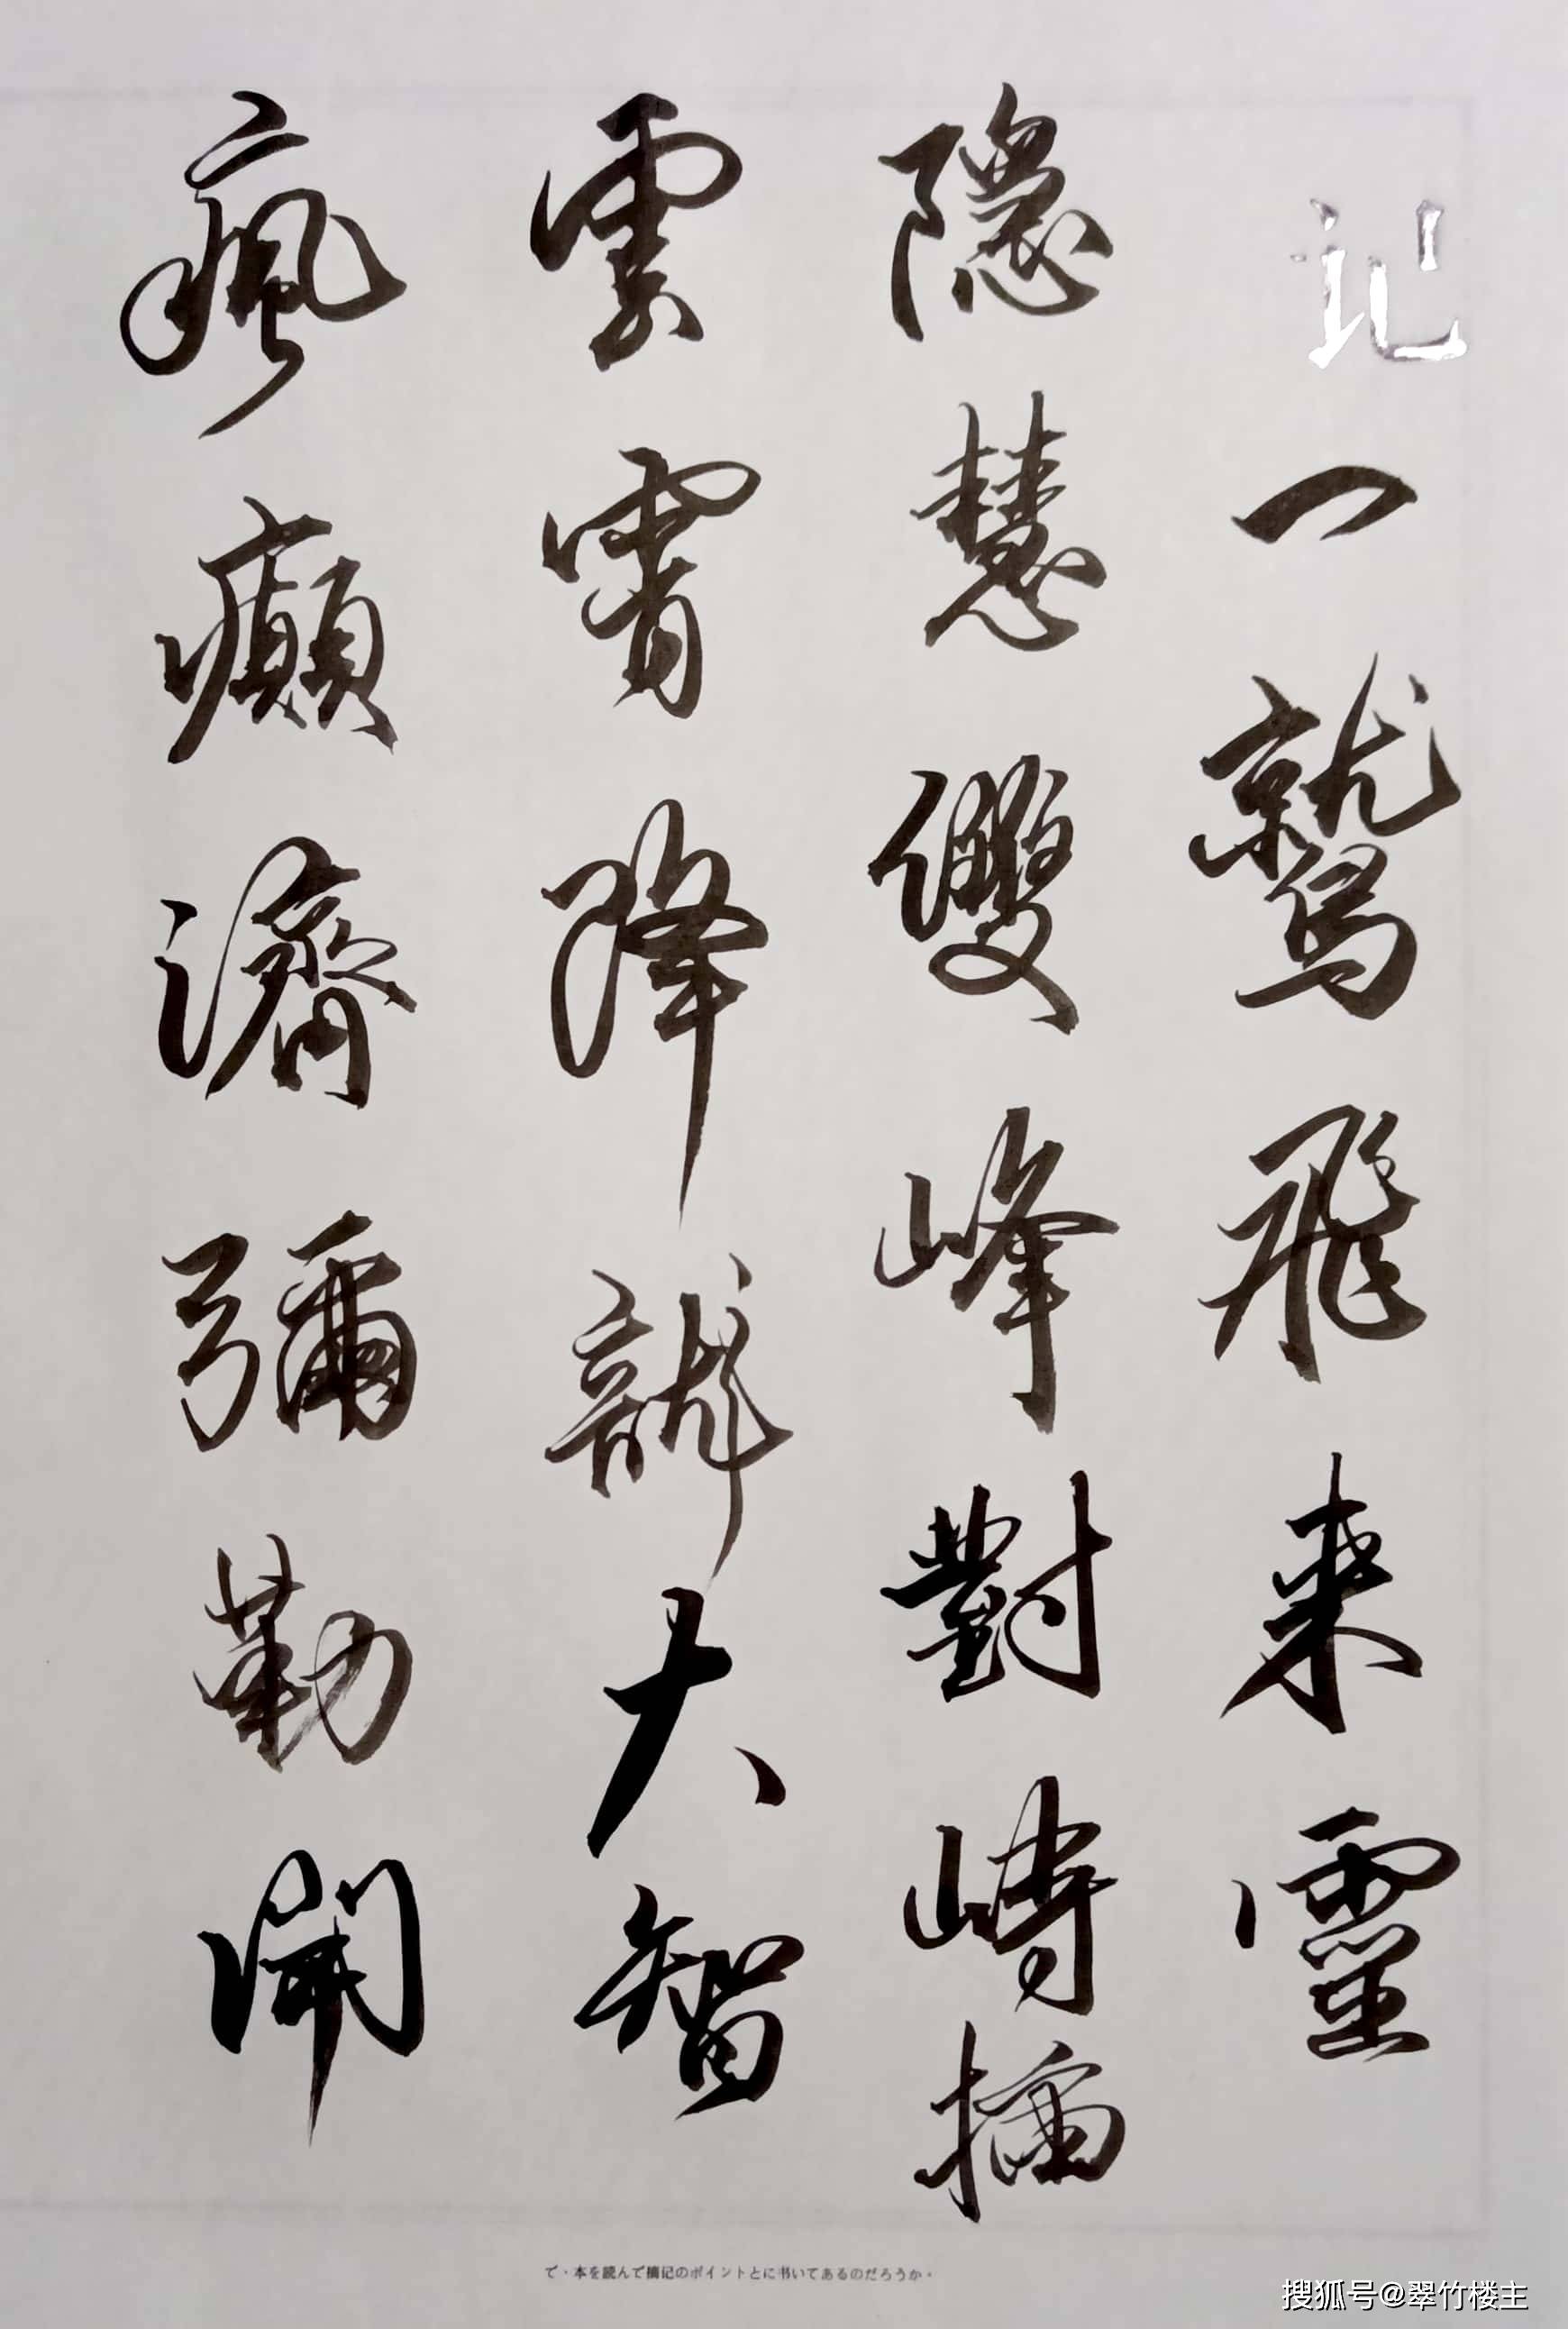 记
一鷲飛来靈
隱慧雙峰對峙插
雲霄降龍大智
瘋癲濟彌勒開
で・本を読んで摘记のポイントとに书いてあるのだろうか。
搜狐号@翠竹楼主